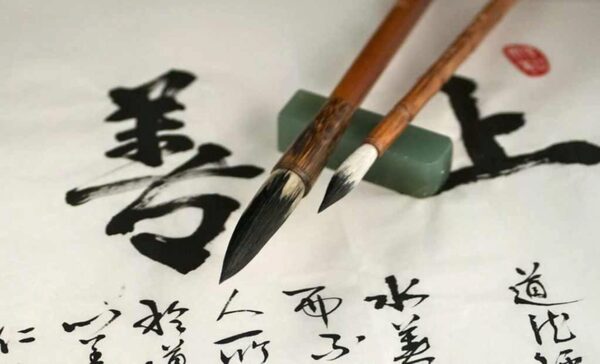 上善
道德
水善
而不
人所
於道
心善
仁